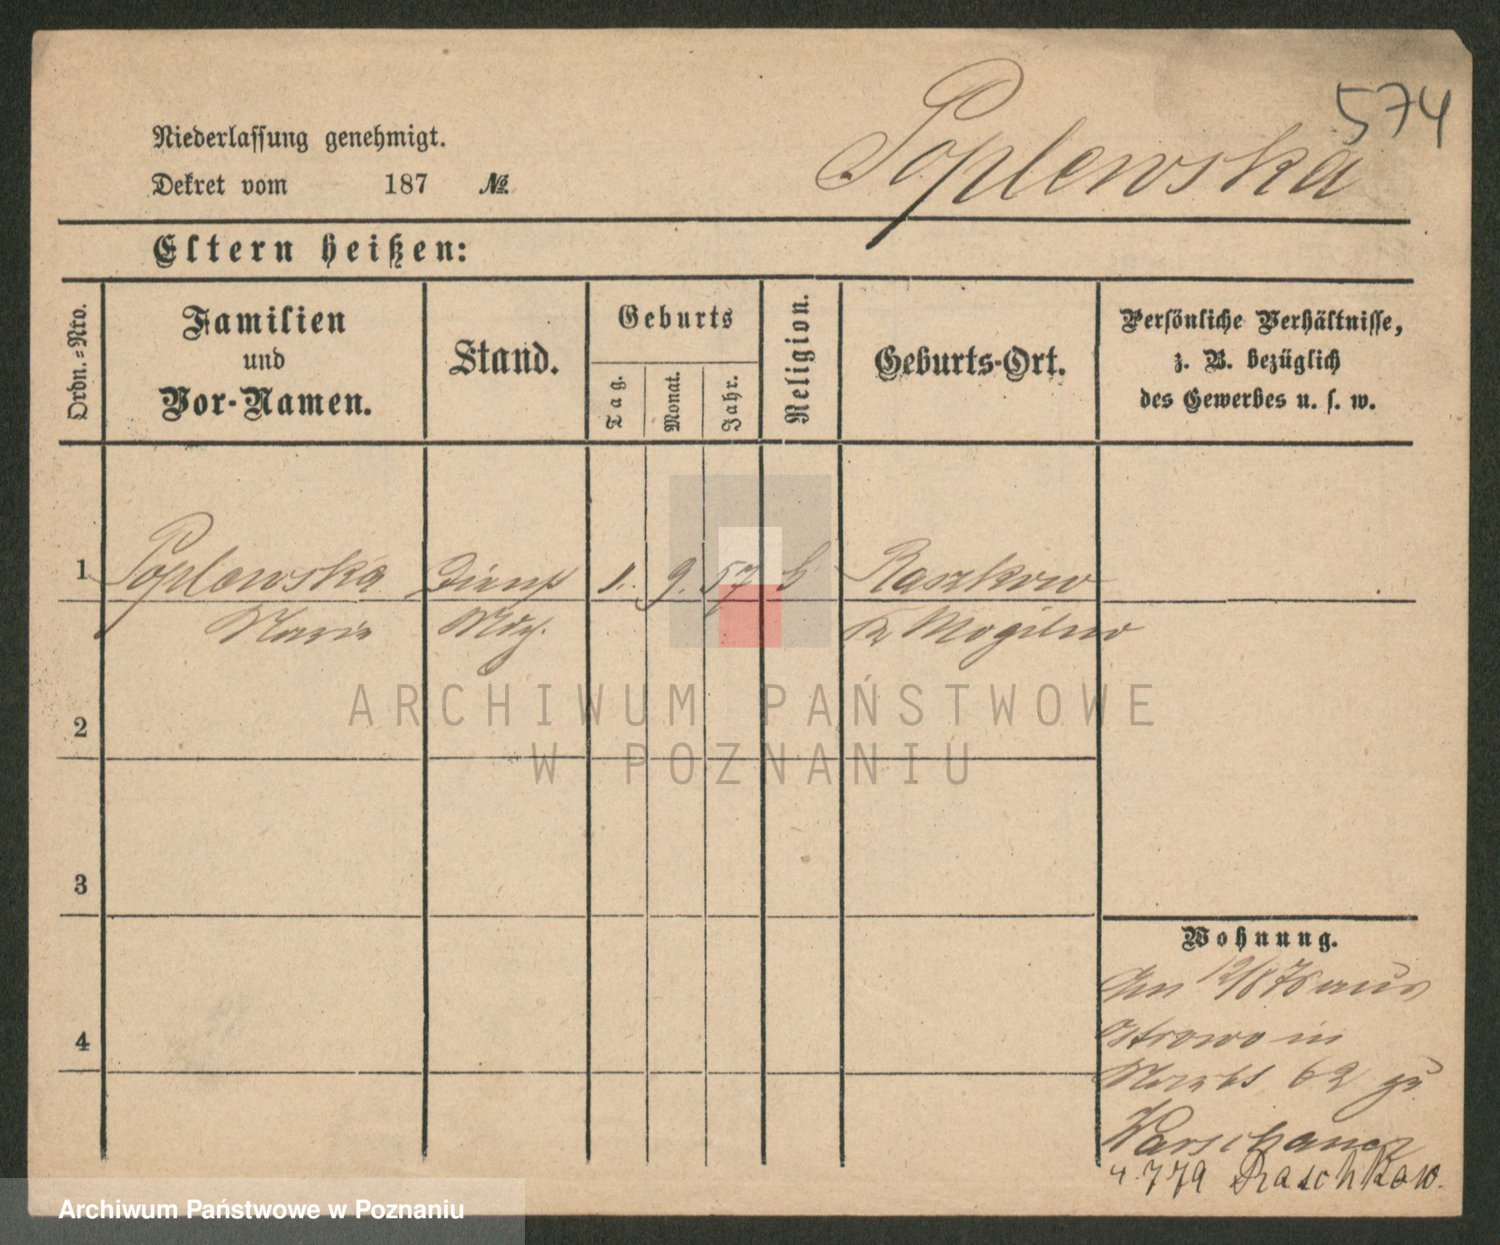 574
Poplewska
Niederlassung genehmigt.
Dekret vom 187 №
Eltern heißen:
Ordn.=Nro.
Familien
und
Vor-Namen.
Stand.
Geburts
Tag.
Monat.
Jahr.
Religion.
Geburts-Ort.
Persönliche Verhältnisse,
z. B. bezüglich
des Gewerbes u. s. w.
1 Poplewska Dienst 1. 9. 57 Raszkow
Marie Mdch. Mogilno
2
3
4
Wohnung.
12/8 78 aus
Ostrowo in
Markt 62 zu
Warschauer
4.7 79 Raschkow.
ARCHIWUM PAŃSTWOWE
W POZNANIU
Archiwum Państwowe w Poznaniu